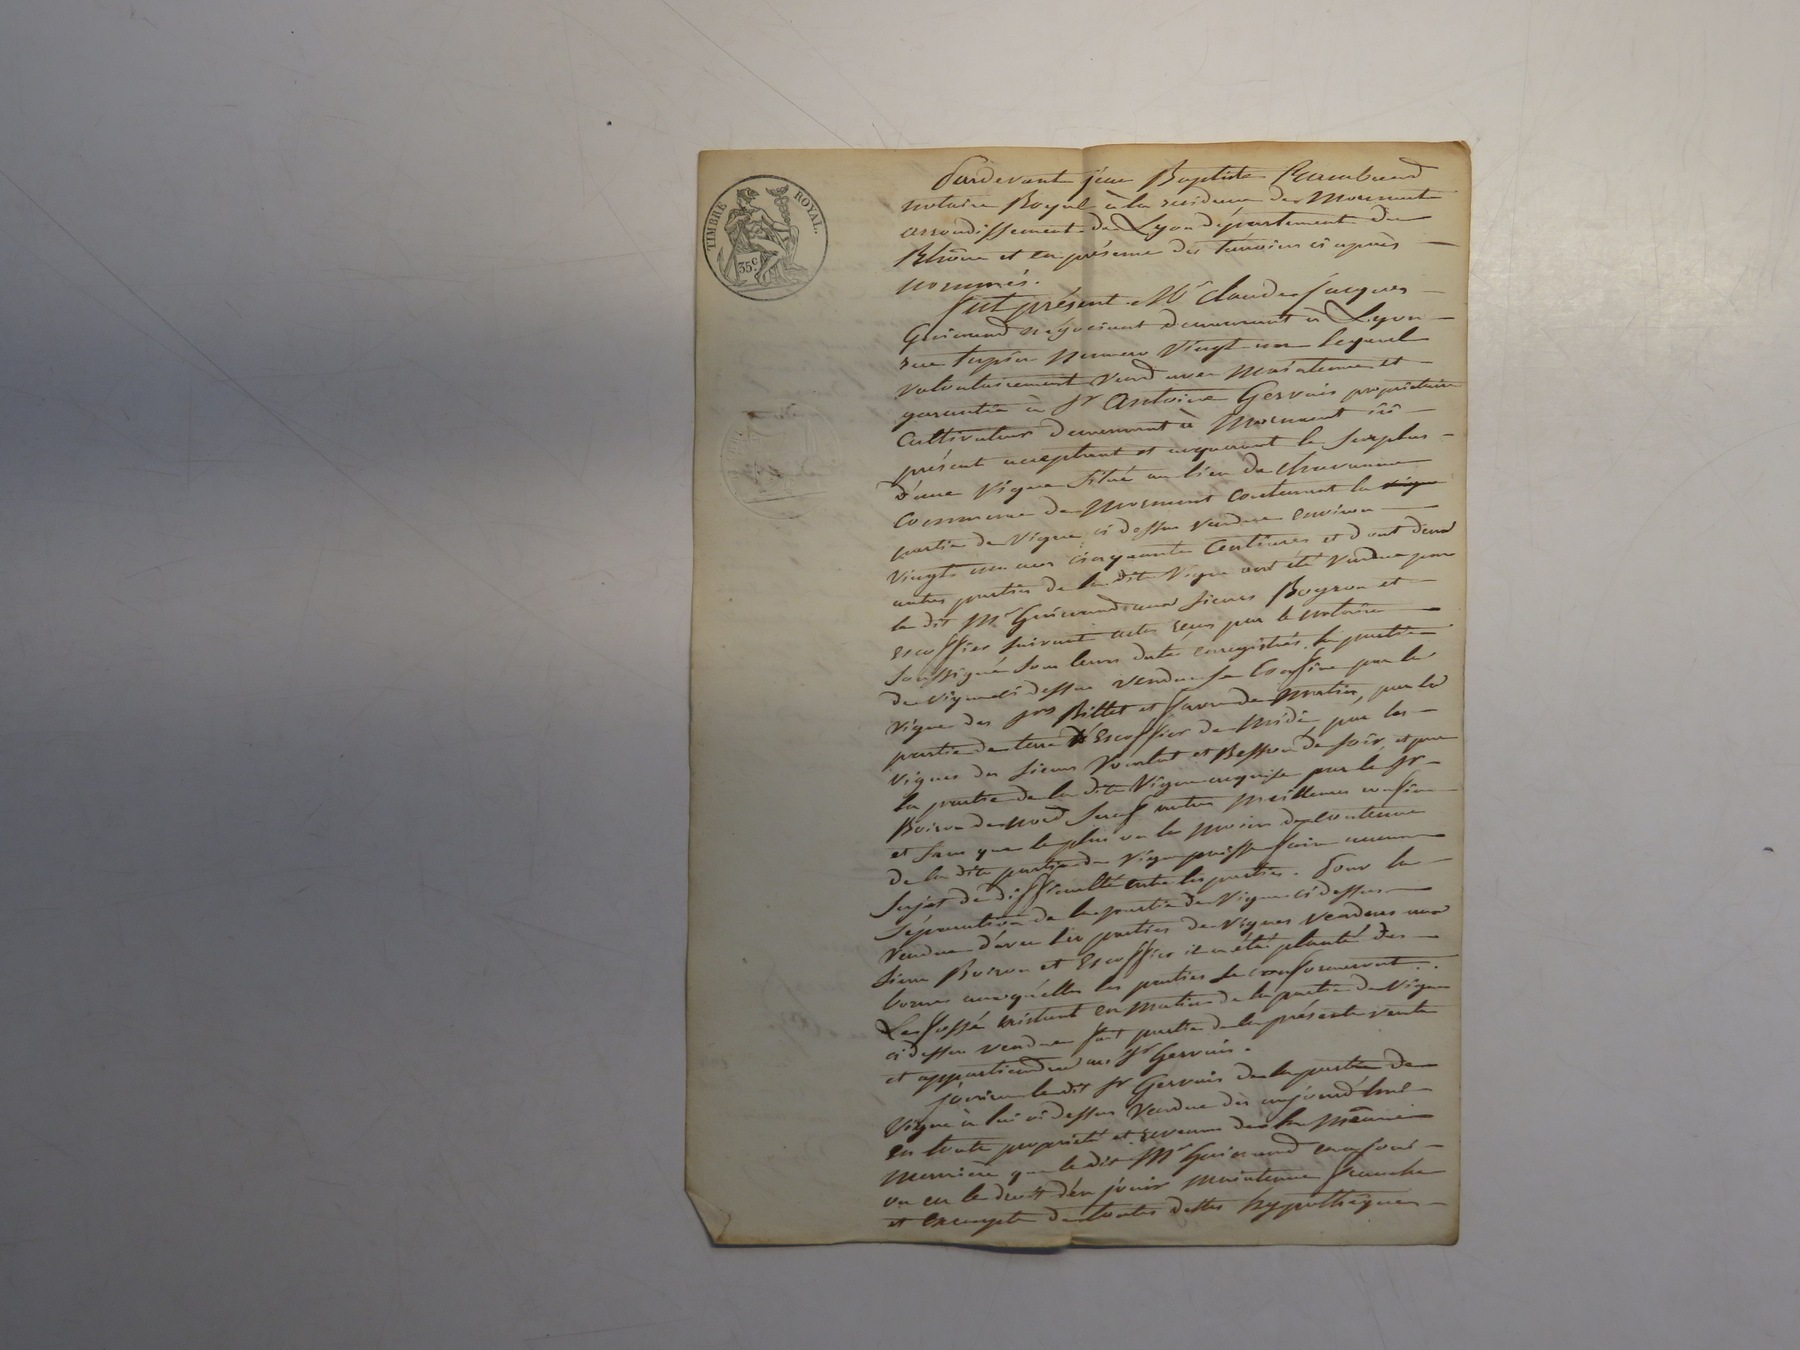 TIMBRE ROYAL.
35c
Pardevant jean Baptiste Rambaud
notaire Royal à la residence de Mornant
arrondissement de Lyon département du
Rhône et en présence des témoins ci après
nommés.
fut présent Mr Claude jacques
Guimand négociant demeurant à Lyon
rue tupin numero vingt un lequel
volontairement vend avec maintenue et
garantie à Sr Antoine Gervais propriétaire
cultivateur demeurant à Mornant ici
présent acceptant et acquérant le surplus
d'une vigne situé au lieu de Chavanne
commune de Mornant contenant la vigne
partie de vigne ci dessus vendue environ
vingts un ares cinquante centiares et dont deux
autres parties de la dite vigne ont été vendue par
le dit Mr Guimand aux sieurs Boyron et
Escoffier suivant actes reçus par le notaire
soussigné sous leurs dates enregistrés. la partie
de vigne ci dessus vendue se confine par la
vigne des Srs Billet et favre de matin, par la
partie de terre d'Escoffier de midi par les
vignes des sieurs et Besson de soir, et par
la partie de la dite vigne acquise par le Sr
Boiron de nord sauf autres meilleurs confins
et sans que le plus ou le moins de contenue
de la dite partie de vigne puisse faire aucun
sujet de difficulté entre les parties. Pour la
séparation de la partie de vigne ci dessus
vendue d'avec les parties de vignes vendues aux
sieurs Boiron et Escoffier il a été planté des
bornes auxquelles les parties se conformeront.
Le fossé existant en matin de la partie de vigne
ci dessus vendue fait partie de la présente vente
et appartiendra au Sr Gervais.
jouira le dit Sr Gervais de la partie de
vigne à lui ci dessus vendue dès aujourd'hui
en toute propriété et revenu de la même
manière que le dit Mr Guimand en a joui
ou eu le droit d'en jouir maintenue franche
et exempte de toutes dettes hypothèques